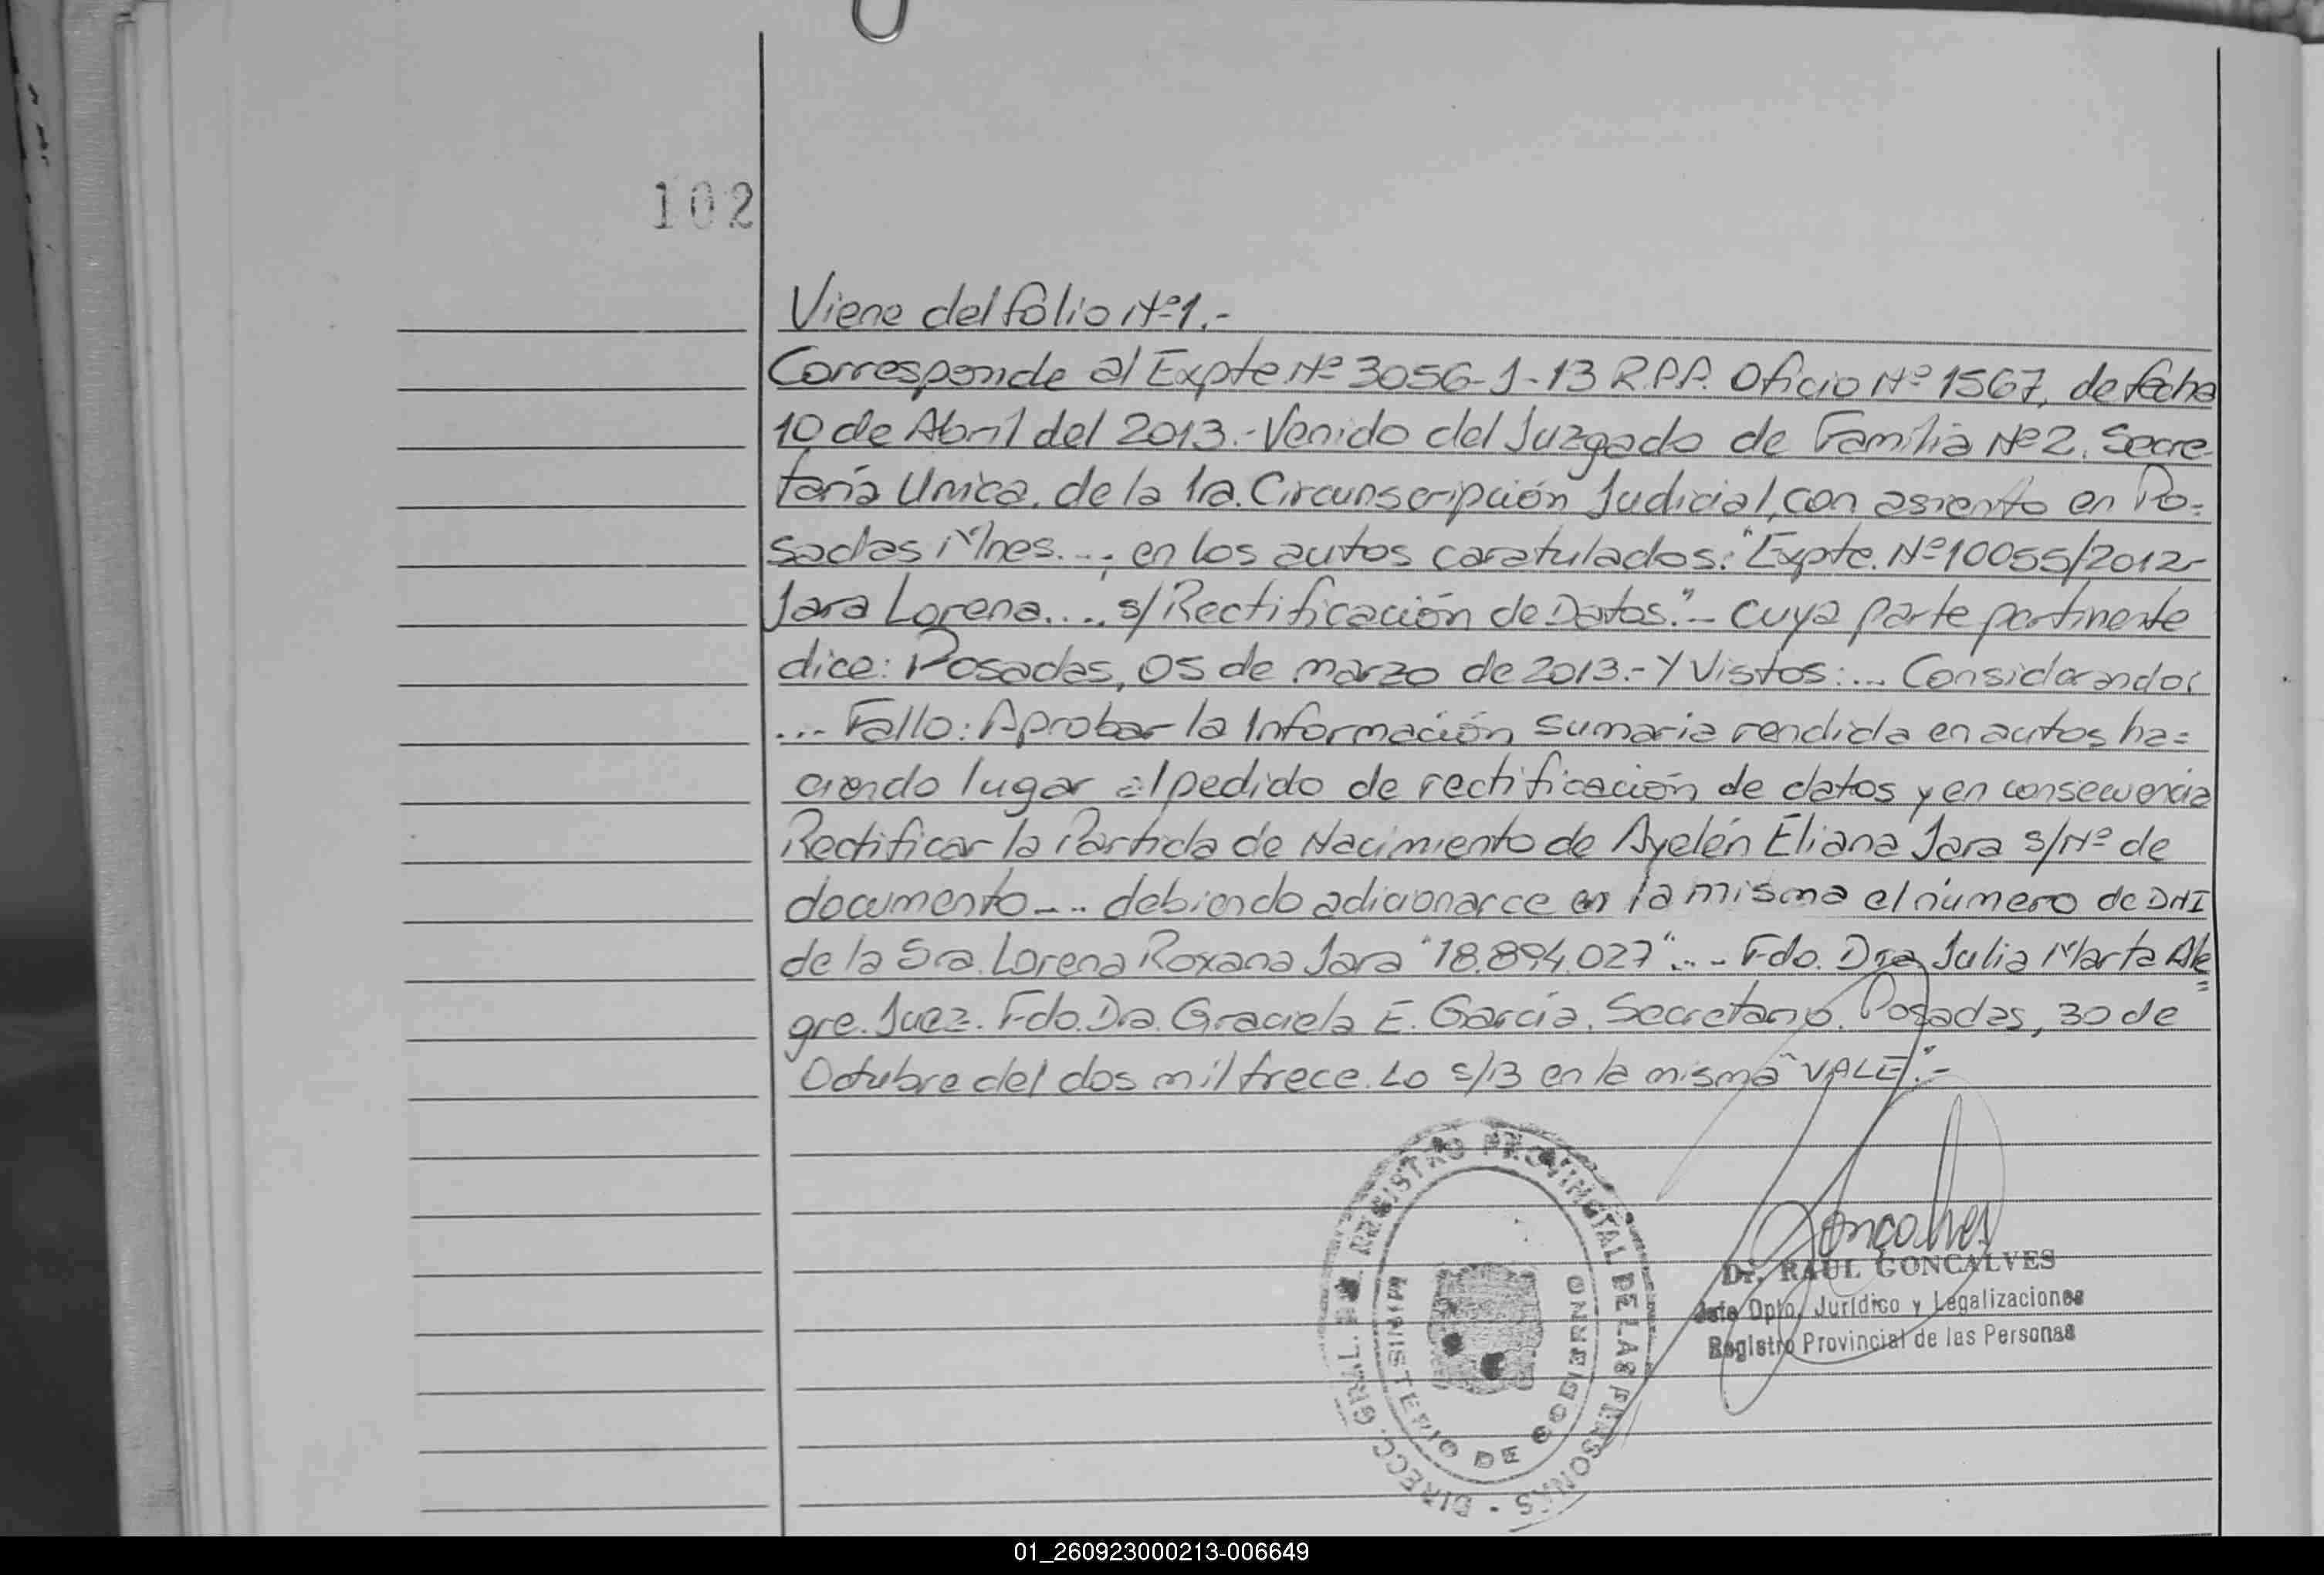 102
Viene del folio Nº1.-
Corresponde al Expte Nº 3056-J-13 R.P.P. Oficio Nº 1567, de fecha
10 de Abril del 2013.- Venido del Juzgado de Familia Nº2. Secre-
taría Unica. de la 1ra. Circunscripción Judicial, con asiento en Po=
sadas Mnes...; en los autos caratulados: "Expte. Nº10055/2012-
Jara Lorena.... s/Rectificación de Datos."- Cuya parte pertinente
dice: Posadas, 05 de marzo de 2013.- Y Vistos:... Considerando:
... Fallo: Aprobar la Información Sumaria rendida en autos ha=
ciendo lugar al pedido de rectificación de datos y en consecuencia
Rectificar la Partida de Nacimiento de Ayelén Eliana Jara s/Nº de
documento... debiendo adicionarce en la misma el número de DNI
de la Sra. Lorena Roxana Jara "18.894.027"... Fdo. Dra Julia Marta Ale=
gre. Juez. Fdo. Dra. Graciela E. García. Secretario. Posadas, 30 de
Octubre del dos mil trece. Lo s/B en la misma "VALE".-
DIRECC. GRAL. DEL REGISTRO PROVINCIAL DE LAS PERSONAS -
MINISTERIO DE GOBIERNO
Goncalves
Dr. RAUL GONCALVES
Jefe Dpto. Jurídico y Legalizaciones
Registro Provincial de las Personas
01_260923000213-006649